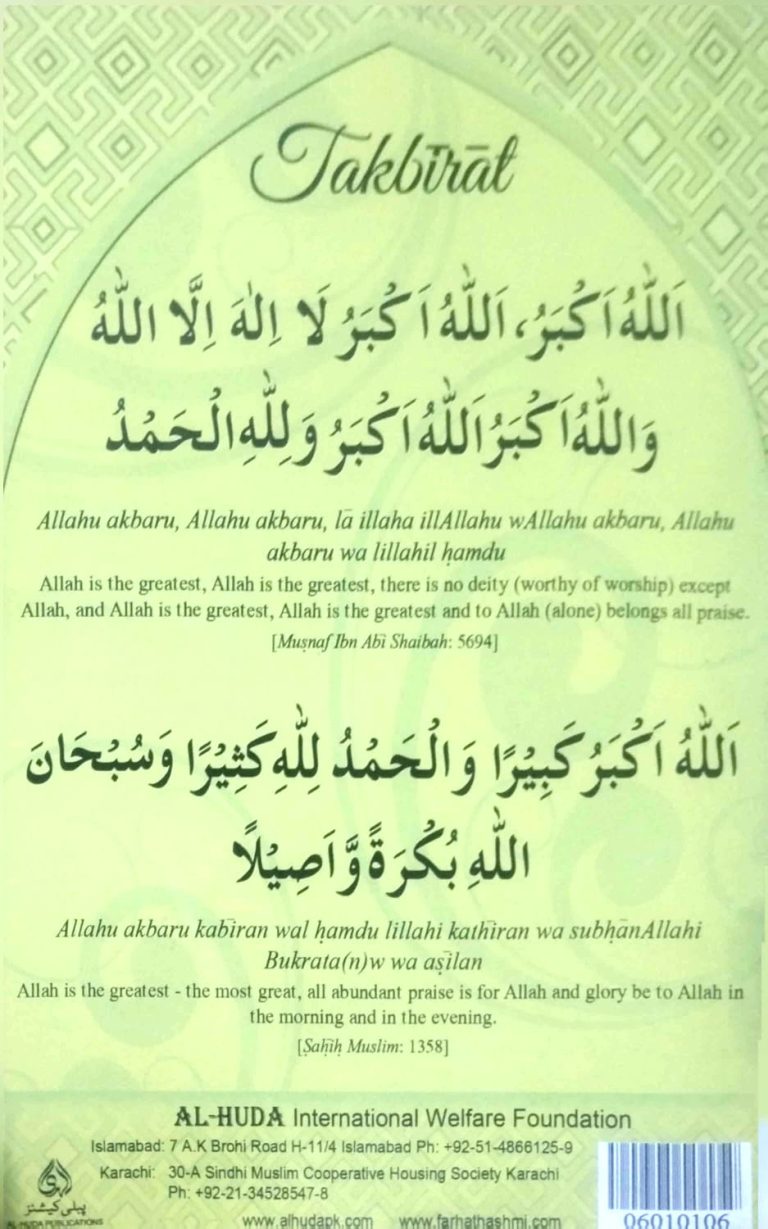 Takbīrāt
اَللّٰهُ اَكْبَرُ، اَللّٰهُ اَكْبَرُ لَا اِلٰهَ اِلَّا اللّٰهُ
وَاللّٰهُ اَكْبَرُ اَللّٰهُ اَكْبَرُ وَلِلّٰهِ الْحَمْدُ
Allahu akbaru, Allahu akbaru, lā illaha illAllahu wAllahu akbaru, Allahu
akbaru wa lillahil ḥamdu
Allah is the greatest, Allah is the greatest, there is no deity (worthy of worship) except
Allah, and Allah is the greatest, Allah is the greatest and to Allah (alone) belongs all praise.
[Muṣnaf Ibn Abī Shaibah: 5694]
اَللّٰهُ اَكْبَرُ كَبِيْرًا وَالْحَمْدُ لِلّٰهِ كَثِيْرًا وَسُبْحَانَ
اللّٰهِ بُكْرَةً وَّاَصِيْلًا
Allahu akbaru kabīran wal ḥamdu lillahi kathīran wa subḥānAllahi
Bukrata(n)w wa aṣīlan
Allah is the greatest - the most great, all abundant praise is for Allah and glory be to Allah in
the morning and in the evening.
[Ṣaḥīḥ Muslim: 1358]
AL-HUDA International Welfare Foundation
Islamabad: 7 A.K Brohi Road H-11/4 Islamabad Ph: +92-51-4866125-9
Karachi: 30-A Sindhi Muslim Cooperative Housing Society Karachi
Ph: +92-21-34528547-8
www.alhudapk.com www.farhathashmi.com
پبلی کیشنز
AL-HUDA PUBLICATIONS
06010106